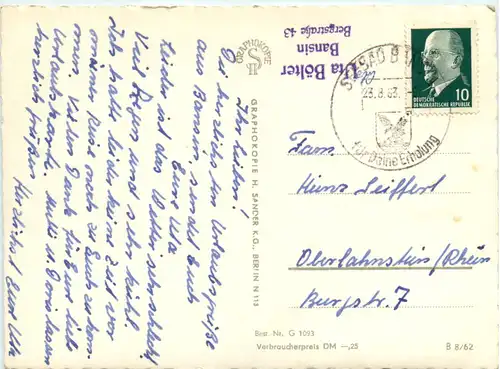 Ihr Lieben!
Die herzlichsten Urlaubsgrüße
aus Bansin, sendet Euch
Eure Uta
Leider ist das Wetter sehr schlecht.
Viel Regen und sehr kühl.
Ich habe leider keine Zeit vor
meiner Reise noch zu Euch zu kom-
men. Vielen Dank für Eure liebe
Urlaubskarte. Mutti u. Doris lassen
herzlich grüßen
Herzlichst Eure Uta
GRAPHOKOPIE
GRAPHOKOPIE H. SANDER K.G., BERLIN N 113
Uta Bölter
Bansin
Bergstraße 43
SEEBAD
23.8.63
für Deine Erholung
DEUTSCHE
DEMOKRATISCHE REPUBLIK
10
Fam.
Heinz Seiffert
Oberlahnstein/Rhein
Burgstr. 7
Best. Nr. G 1093
Verbraucherpreis DM —,25
B 8/62